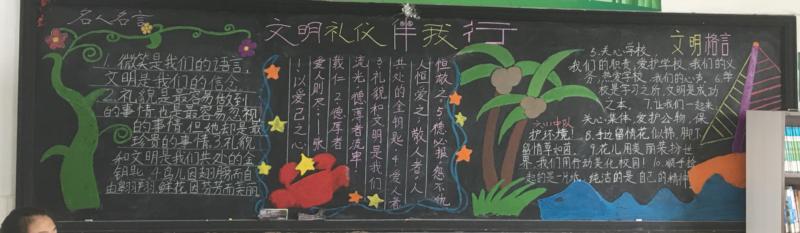 名人名言
文明礼仪伴我行
文明格言
1.微笑是我们的语言,
文明是我们的信念
2.礼貌是最容易做到
的事情也是最容易忽视
的事情,但他却是最
珍贵的事情3.礼貌
和文明是我们共处的金
钥匙 4.鸟儿因翅膀而自
由翱翔,鲜花因芬芳而美丽
恒敬之5.德必报,怨不仇
人恒爱之,敬人者,人
共处的金钥匙 4.爱人者
3.礼貌和文明是我们
流光,德厚者流卑!
载仁 2.德厚者
爱人则尽!——张
1.以爱己之心
5.关心学校,
我们的职责,爱护学校,我们的义
务;热爱学校,我们的心声。6.学
校是学习之所,文明是成功
之本。7.让我们一起来,
关心集体,爱护公物,保
护环境!8.手边留情花似锦,脚下
留情草如茵。9.花儿用美丽装扮世
界,我们用行动美化校园!10.顺手捡
起的是一片纸,纯洁的是自己的精神